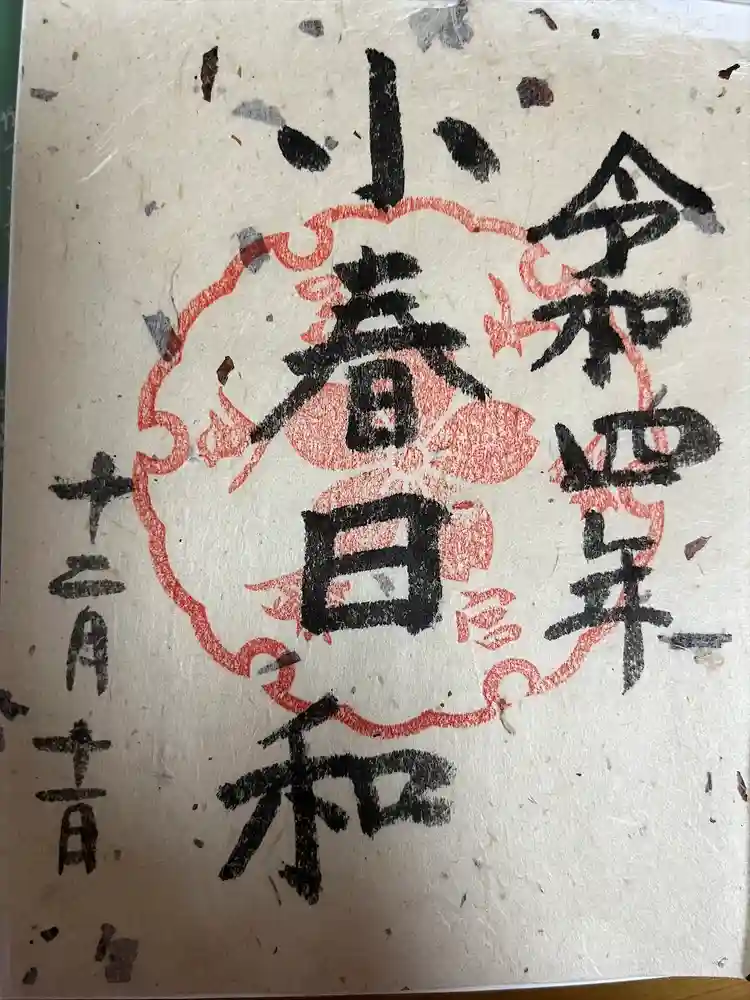 令和四年
小春日和
十二月十一日